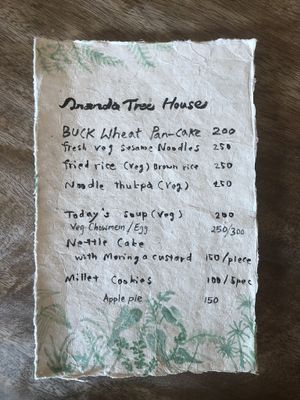 Ananda Tree House
BUCK Wheat Pan-Cake 200
fresh veg sesame Noodles 250
fried rice (veg) Brown rice 250
Noodle thukpa (veg) 250
Today's soup (veg) 200
Veg Chowmein / Egg 250/300
Nettle Cake
with Moringa custard 150/piece
Millet Cookies 100/5pec
Apple pie 150